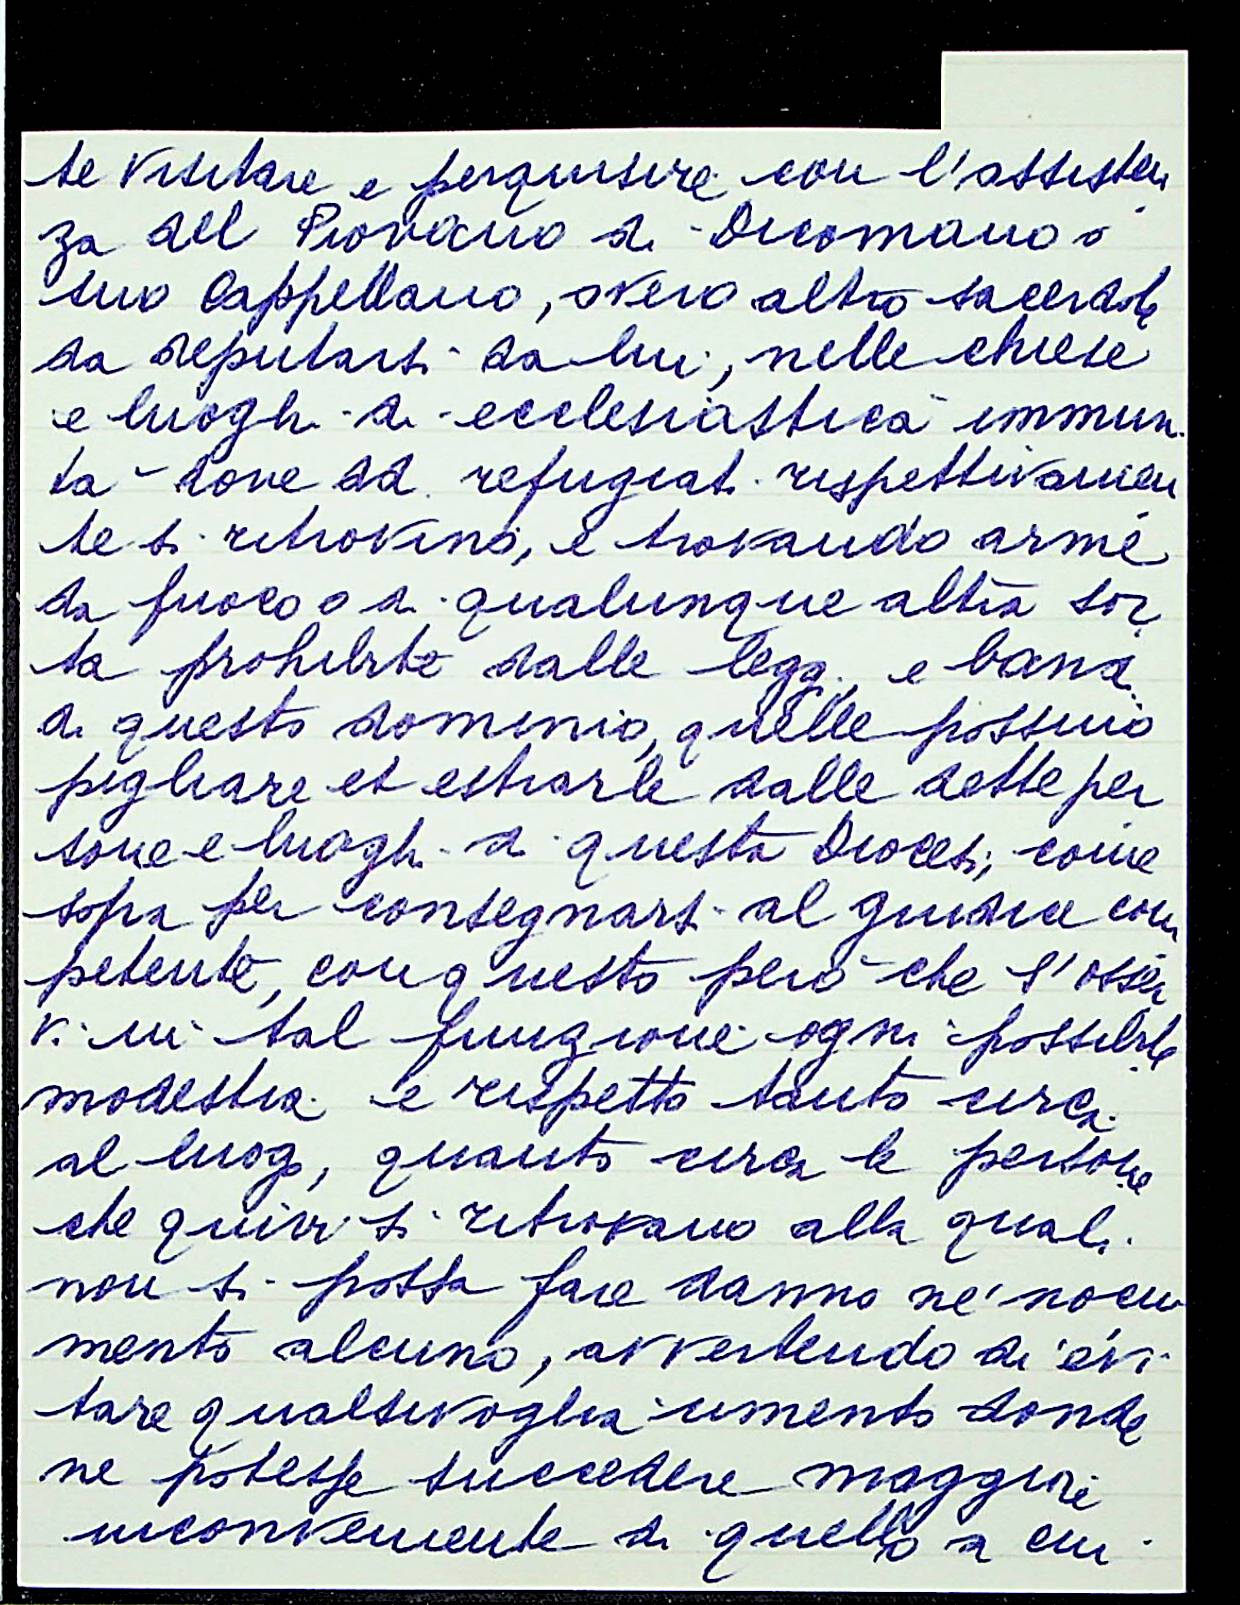 te visitare e perquisire con l'assisten
za del Piovano di Dicomano o
suo Cappellano, overo altro sacerdote
da deputarsi da lui, nelle chiese
e luoghi di ecclesiastica immuni
tà dove dd. refugiati rispettivamen
te si ritrovino, e trovando arme
da fuoco o di qualunque altra sor
ta prohibite dalle leggi, e bandi
di questo dominio, quelle possino
pigliare et estrarle dalle dette per
sone e luoghi di questa Diocesi, come
sopra per consegnarsi al giudice com
petente, con questo però che s'osser
vi in tal funzione ogni possibile
modestia e rispetto tanto circa
al luogo, quanto circa le persone
che quivi si ritrovano alla quali
non si possa fare danno né nocu
mento alcuno, avvertendo di evi
tare qualsivoglia cimento donde
ne potesse succedere maggiore
inconveniente di quello a cui